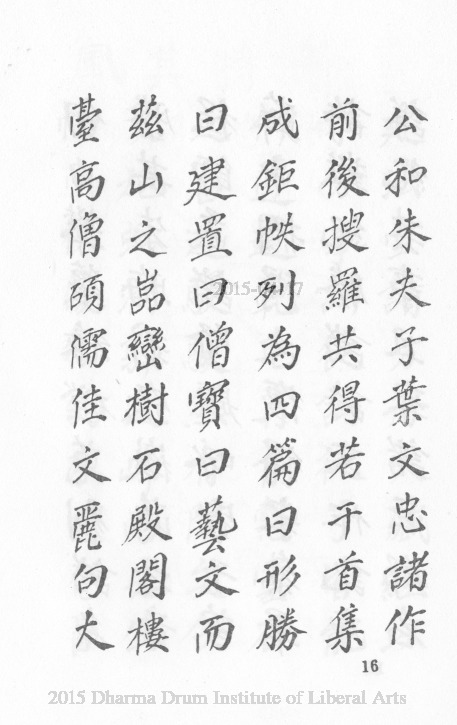 公和朱夫子葉文忠諸作
前後搜羅共得若干首集
成鉅帙列為四篇曰形勝
曰建置曰僧寶曰藝文而
茲山之嵓巒樹石殿閣樓
臺高僧碩儒佳文麗句大
16
2015 Dharma Drum Institute of Liberal Arts